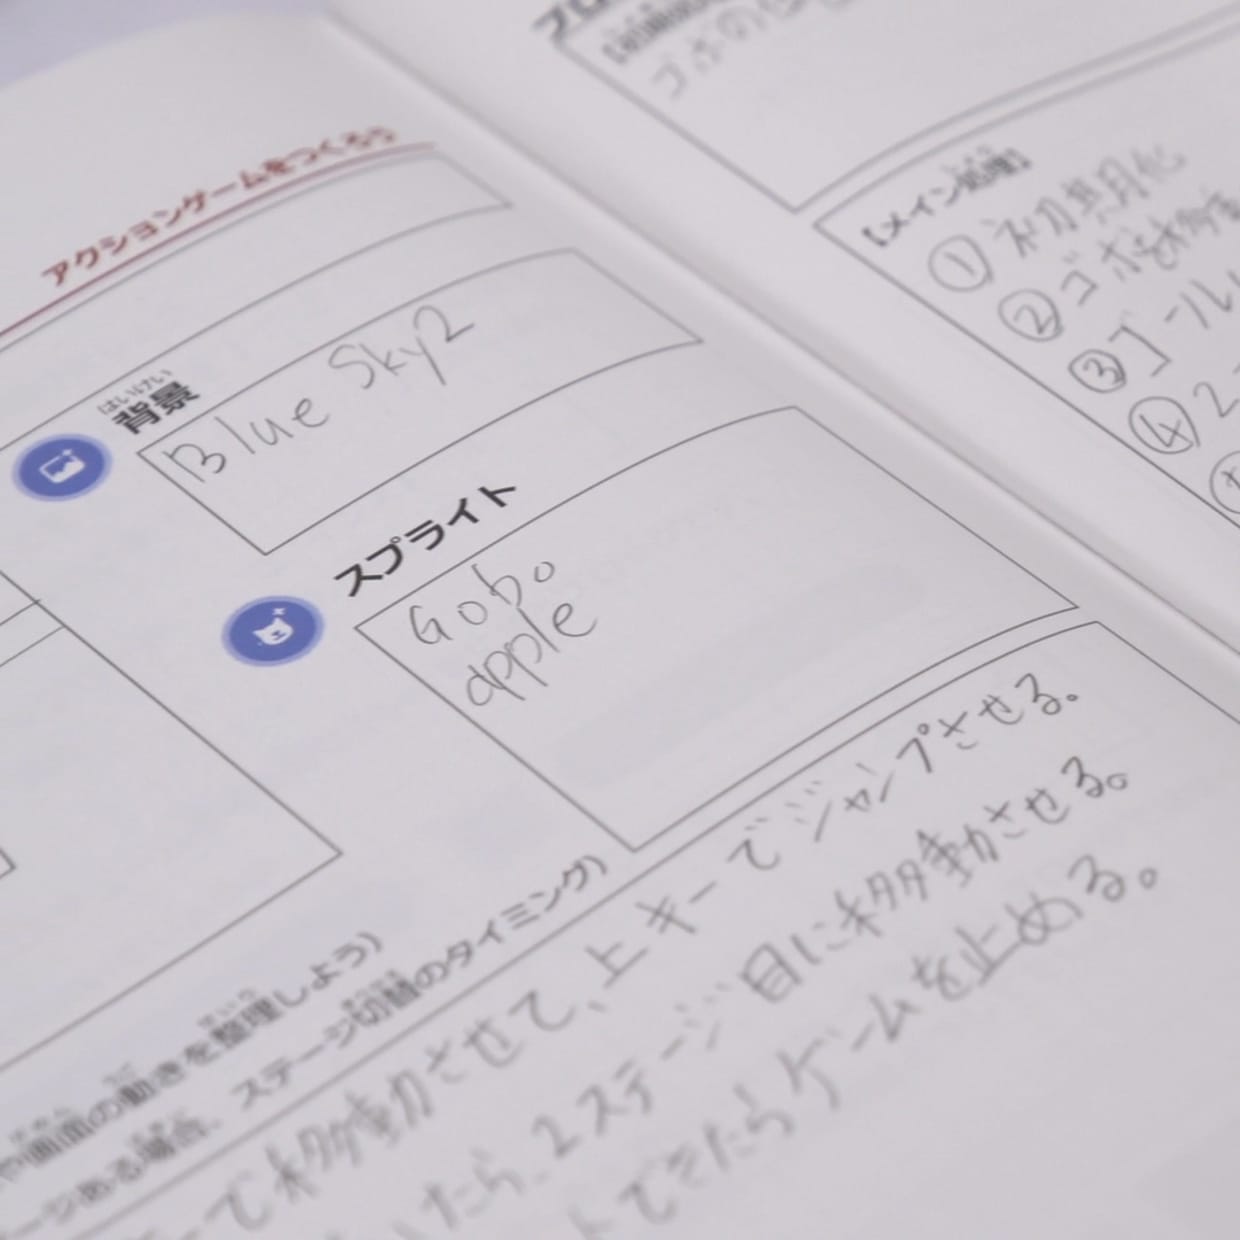 アクションゲームをつくろう
はいけい
背景
Blue Sky2
スプライト
Gobo
apple
画面の動きを整理しよう）
場合、ステージ切替のタイミング）
で移動させて、上キーでジャンプさせる。
たら、2ステージ目に移動させる。
できたらゲームを止める。
【メイン処理】
① 初期化
② ゴボ移動
③ ゴール
④ 2